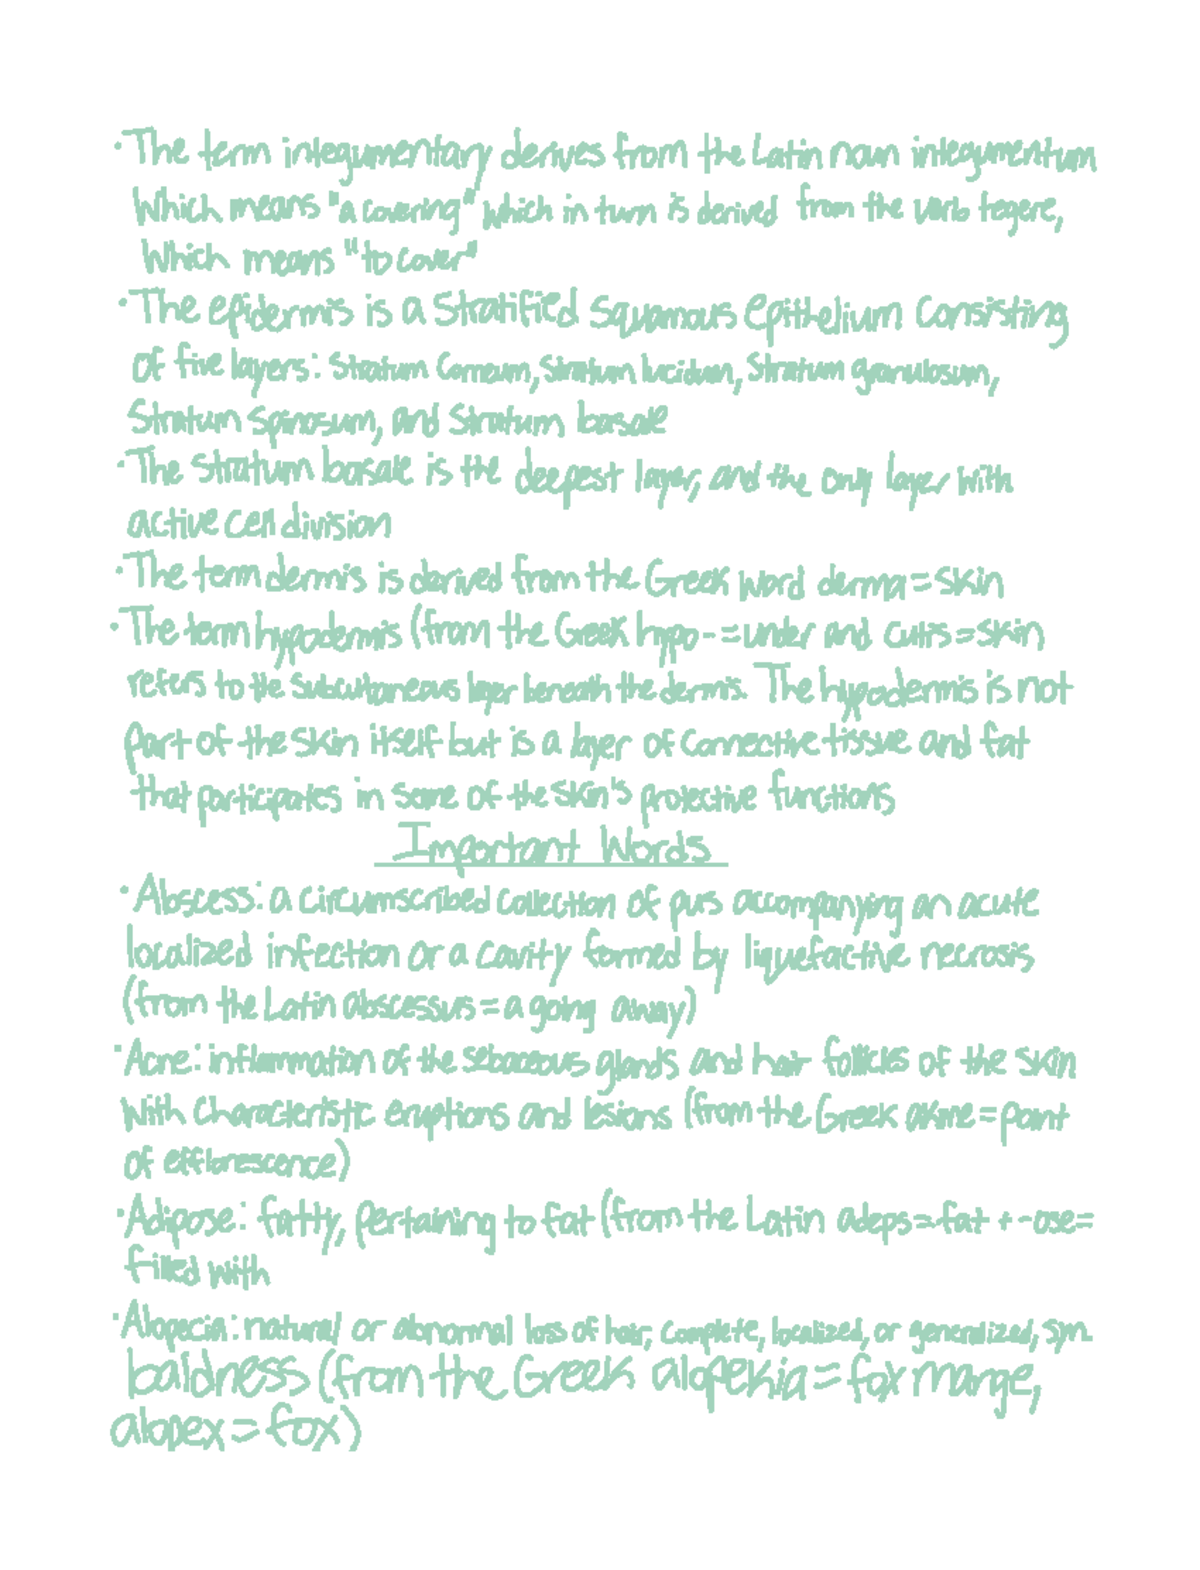 · The term integumentary derives from the Latin noun integumentum
Which means "a covering" which in turn is derived from the verb tegere,
Which means "to cover"
· The epidermis is a Stratified Squamous epithelium consisting
of five layers: Stratum Corneum, Stratum lucidum, Stratum granulosum,
Stratum Spinosum, and Stratum basale
· The stratum basale is the deepest layer, and the only layer with
active cell division
· The term dermis is derived from the Greek word derma = skin
· The term hypodermis (from the Greek hypo- = under and cutis = skin
refers to the subcutaneous layer beneath the dermis. The hypodermis is not
part of the skin itself but is a layer of connective tissue and fat
that participates in some of the skin's protective functions
Important Words
· Abscess: a circumscribed collection of pus accompanying an acute
localized infection or a cavity formed by liquefactive necrosis
(from the Latin abscessus = a going away)
· Acne: inflammation of the sebaceous glands and hair follicles of the skin
with characteristic eruptions and lesions (from the Greek akme = point
of efflorescence)
· Adipose: fatty, pertaining to fat (from the Latin adeps = fat + -ose =
filled with
· Alopecia: natural or abnormal loss of hair, complete, localized, or generalized, syn.
baldness (from the Greek alopekia = fox mange,
alopex = fox)